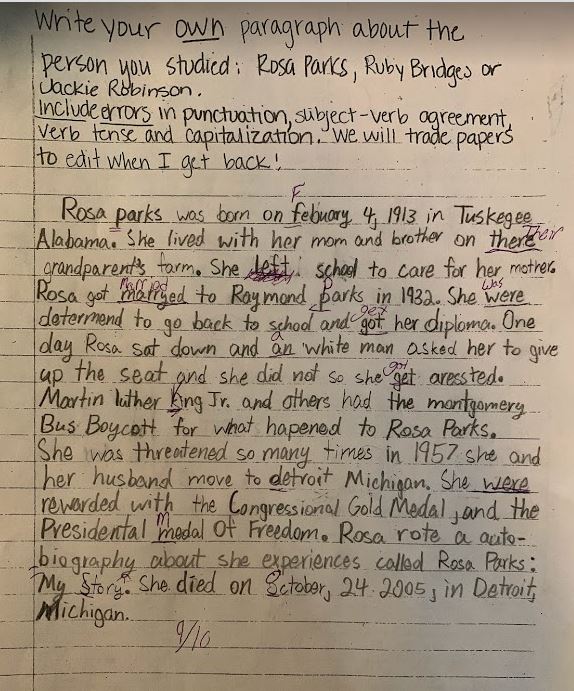 Write your own paragraph about the
person you studied: Rosa Parks, Ruby Bridges or
Jackie Robinson.
Include errors in punctuation, subject-verb agreement,
verb tense and capitalization. We will trade papers
to edit when I get back!
F
Rosa parks was born on febuary 4, 1913 in Tuskegee
Alabama. She lived with her mom and brother on there Their
grandparent's farm. She left school to care for her mother.
Married was
Rosa got marryed to Raymond Parks in 1932. She were
get
determend to go back to school and got her diploma. One
a
day Rosa sat down and an white man asked her to give
got
up the seat and she did not so she get aressted.
Martin luther king Jr. and others had the montgomery
Bus Boycott for what hapened to Rosa Parks.
She was threatened so many times in 1957 she and
her husband move to detroit Michigan. She were
rewarded with the Congressional Gold Medal, and the
M
Presidential medal Of Freedom. Rosa rote a auto-
biography about she experiences called Rosa Parks:
My Story. She died on October, 24 2005, in Detroit,
Michigan.
9/10